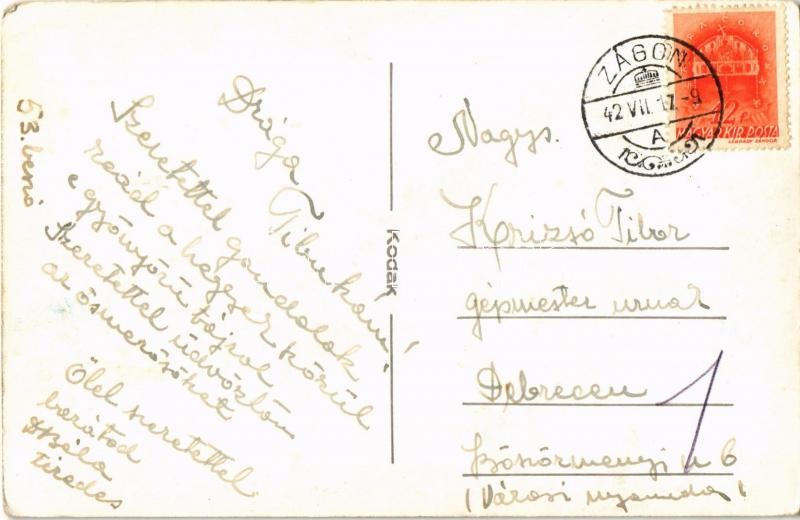 Drága Tibukám!
Szeretettel gondolok
reád a hegyek közül
e gyönyörű tájról
Szeretettel üdvözlöm
az ösmerősöket
Ölel szeretettel
barátod
Béla
tüzedes
53.
Kodak
ZÁGON
42 VII. 17. -9
A
12 F
MAGYAR KIR. POSTA
LÉGRÁDY SÁNDOR
Nagys.
Krizsó Tibor
gépmester urnak
Debrecen
Böszörményi u 6
(Városi nyomda)